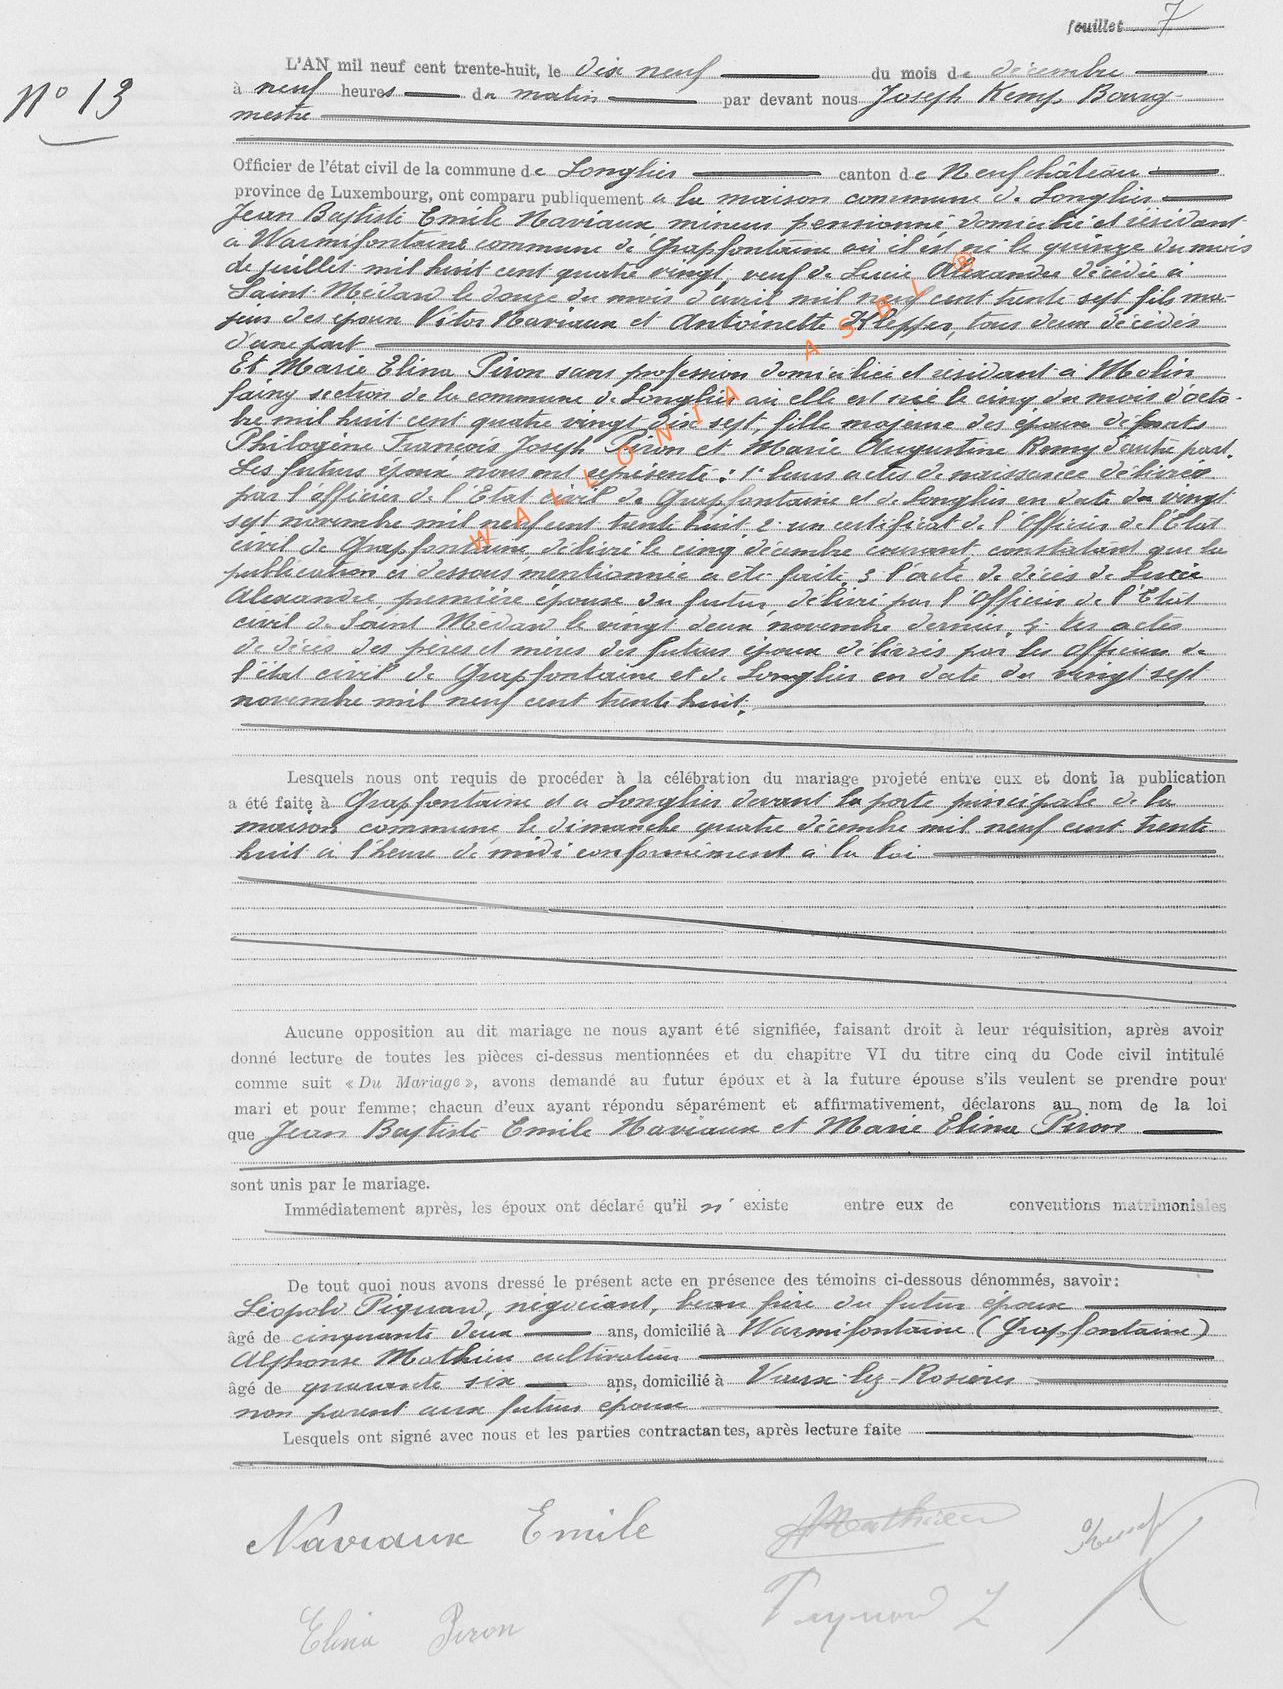 feuillet 7
N° 13
L'AN mil neuf cent trente-huit, le dix neuf du mois de décembre
à neuf heures du matin par devant nous Joseph Kemp Bourg-
mestre
Officier de l'état civil de la commune de Longlier canton de Neufchâteau
province de Luxembourg, ont comparu publiquement a la maison commune de Longlier
Jean Baptiste Emile Naviaux, mineur pensionné domicilié et résidant
à Warmifontaine commune de Grapfontaine où il est né le quinze du mois
de juillet mil huit cent quatre vingt, veuf de Lucie Alexandre décédée à
Saint Médard le douze du mois d'avril mil neuf cent trente sept fils ma-
jeur des époux Victor Naviaux et Antoinette Klepper, tous deux décédés
d'une part
Et Marie Elina Piron sans profession domiciliée et résidant à Molin
faing section de la commune de Longlier où elle est née le cinq du mois d'octo-
bre mil huit cent quatre vingt dix sept, fille majeure des époux défunts
Philogène François Joseph Piron et Marie Augustine Remy d'autre part.
Les futurs époux nous ont représenté : 1° leurs actes de naissance délivrés
par l'officier de l'Etat civil de Grapfontaine et de Longlier en date du vingt
sept novembre mil neuf cent trente huit 2° un certificat de l'Officier de l'Etat
civil de Grapfontaine, délivré le cinq décembre courant, constatant que la
publication ci dessous mentionnée a été faite, 3° l'acte de décès de Lucie
Alexandre première épouse du futur, délivré par l'Officier de l'Etat
civil de Saint Médard le vingt deux novembre dernier, 4° les actes
de décès des pères et mères des futurs époux délivrés par les officiers de
l'état civil de Grapfontaine et de Longlier en date du vingt sept
novembre mil neuf cent trente huit.
WALLONIA ASBL ®
Lesquels nous ont requis de procéder à la célébration du mariage projeté entre eux et dont la publication
a été faite à Grapfontaine et a Longlier devant la porte principale de la
maison commune le dimanche quatre décembre mil neuf cent trente
huit à l'heure de midi conformément à la loi
Aucune opposition au dit mariage ne nous ayant été signifiée, faisant droit à leur réquisition, après avoir
donné lecture de toutes les pièces ci-dessus mentionnées et du chapitre VI du titre cinq du Code civil intitulé
comme suit « Du Mariage », avons demandé au futur époux et à la future épouse s'ils veulent se prendre pour
mari et pour femme; chacun d'eux ayant répondu séparément et affirmativement, déclarons au nom de la loi
que Jean Baptiste Emile Naviaux et Marie Elina Piron
sont unis par le mariage.
Immédiatement après, les époux ont déclaré qu'il n' existe entre eux de conventions matrimoniales
De tout quoi nous avons dressé le présent acte en présence des témoins ci-dessous dénommés, savoir:
Léopold Piquard, négociant, beau frère du futur époux
âgé de cinquante deux ans, domicilié à Warmifontaine (Grapfontaine)
Alphonse Mathieu cultivateur
âgé de quarante six ans, domicilié à Vaux-lez-Rosières
non parent aux futurs époux
Lesquels ont signé avec nous et les parties contractantes, après lecture faite
Naviaux Emile
A Mathieu
Elina Piron